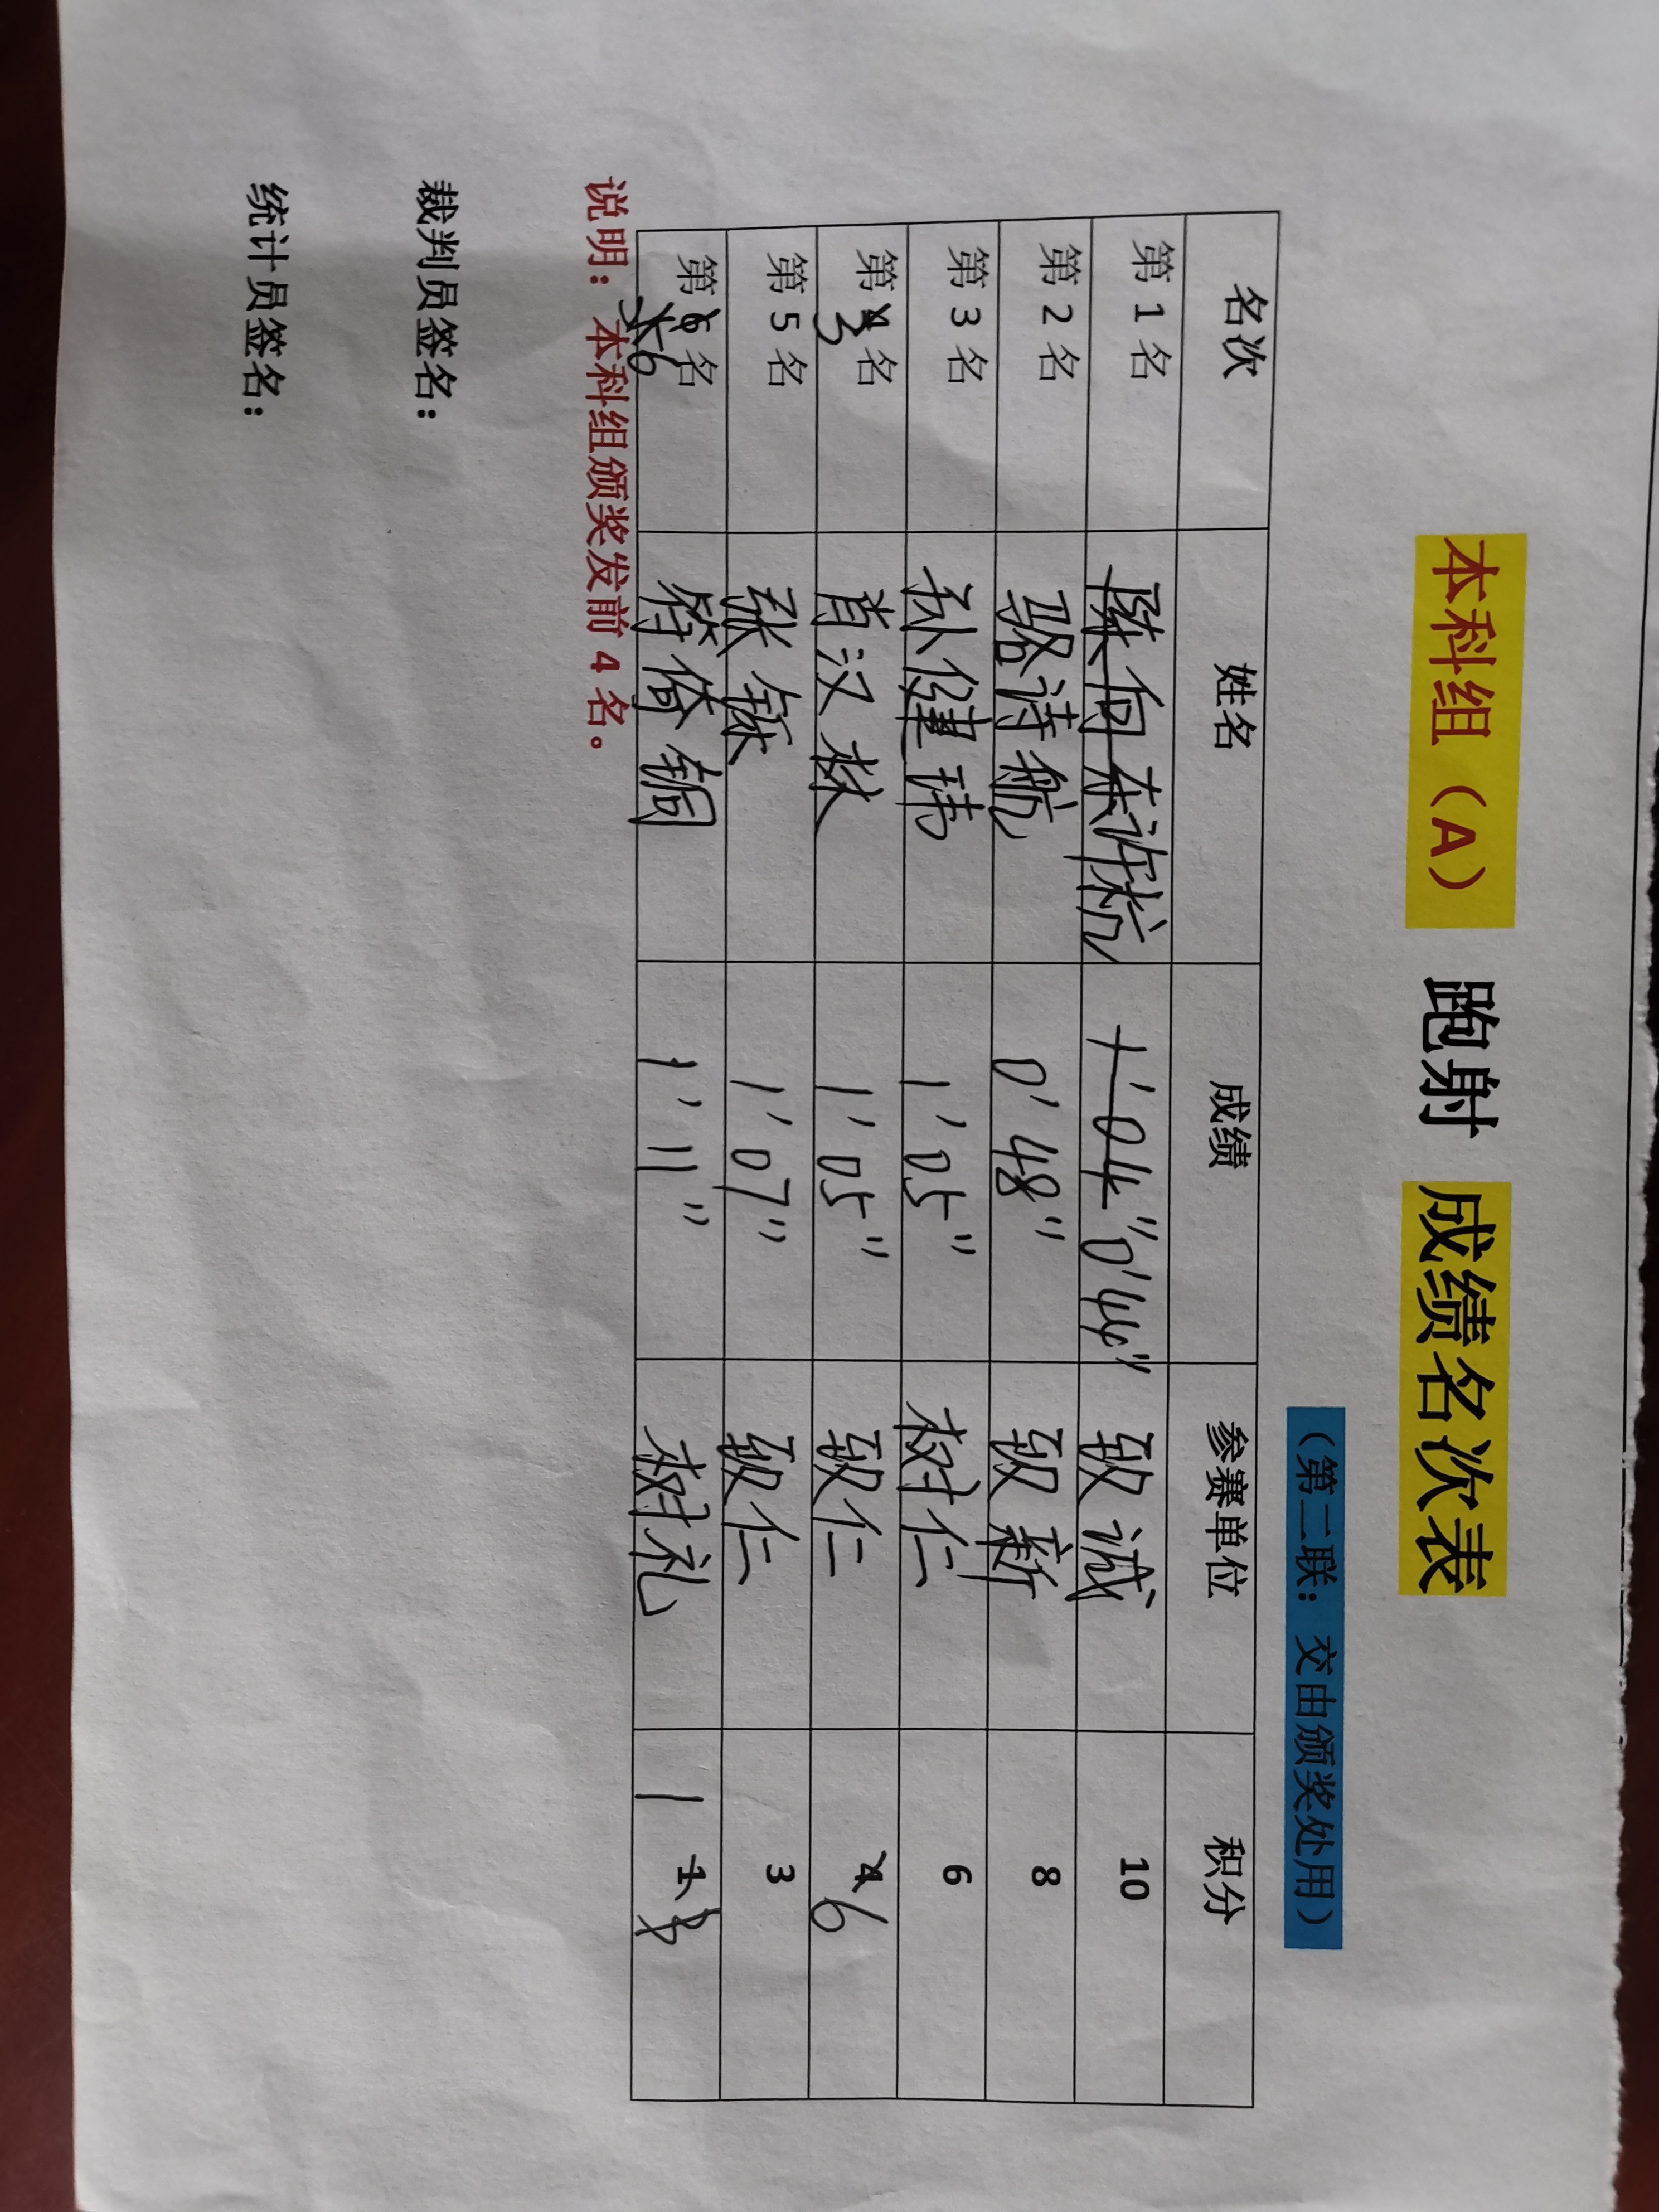 本科组（A） 跑射 成绩名次表
（第二联：交由颁奖处用）
名次 姓名 成绩 参赛单位 积分
第1名 陈向东 许杭 1'04" 0'44" 致诚 10
第2名 骆诗航 0'48" 致新 8
第3名 孙健玮 1'05" 树仁 6
第4名 3 肖汉 1'05" 致仁 4 6
第5名 张 1'07" 致仁 3
第6名 6 符倚 1'11" 树礼 1 1
说明：本科组颁奖发前4名。
裁判员签名：
统计员签名：